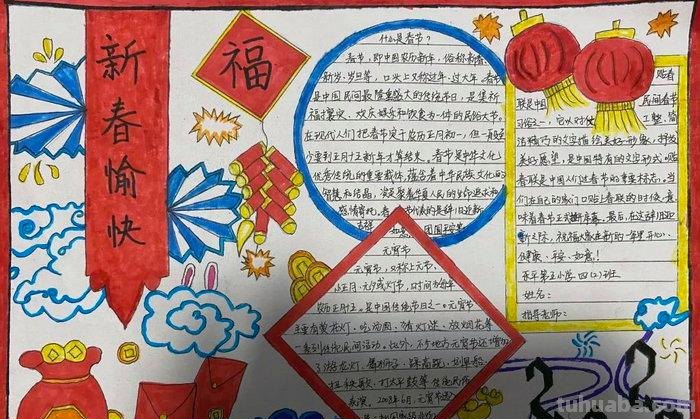 新春愉快
福
什么是春节?
春节,即中国农历新年,俗称新春、
新岁、岁旦等,口头上又称过年、过大年。春节
是中国民间最隆重盛大的传统节日,是集祈
福攘灾、欢庆娱乐和饮食为一体的民俗大节。
在现代人们把春节定于农历正月初一,但一般至
少要到正月十五新年才算结束。春节是中华文化
优秀传统的重要载体,蕴含着中华民族文化的
智慧和结晶,
感情寄托,
元宵节
元宵节,又称上元节、
小正月、元夕或灯节,时间为每年
农历正月十五。是中国传统节日之一。元宵节
主要有赏花灯、吃汤圆、猜灯谜、放烟花等
一系列传统民俗活动。此外,不少地方元宵节还增加
了游龙灯、舞狮子、踩高跷、划旱船
扭秧歌、打太平鼓等传统民俗
表演。2008年6月,元宵节选
贴春
联是中国 民间春节
习俗之一,它以对仗 工整、简
洁精巧的文字描绘美好形象,抒发
美好愿望,是中国特有的文学形式。贴
春联是中国人们过春节的重要标志。当
人们在自己的家门口贴上春联的时候,意
味着春节正式拉开序幕。最后,在这辞旧迎
新之际,祝福大家在新的一年里开心、
健康、平安、如意!
东平第五小学 四(2)班
姓名:
指导老师:
tuhuaba.com